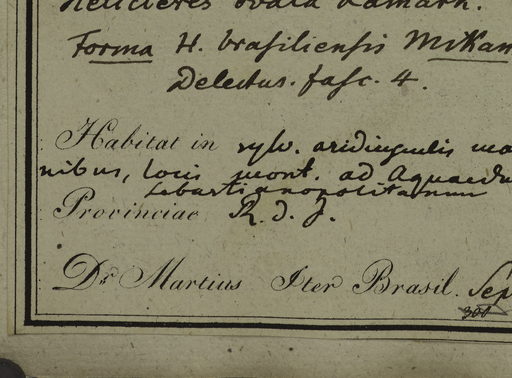 Helicteres ovata Lamark.
Forma H. brasiliensis Mikan
Delectus. fasc. 4.
Habitat in sylv. aridiusculis
nibus, locis mont. ad Aquaedu
Sebastianopolitanum
Provinciae R. d. J.
Dr. Martius Iter Brasil. Sep
300